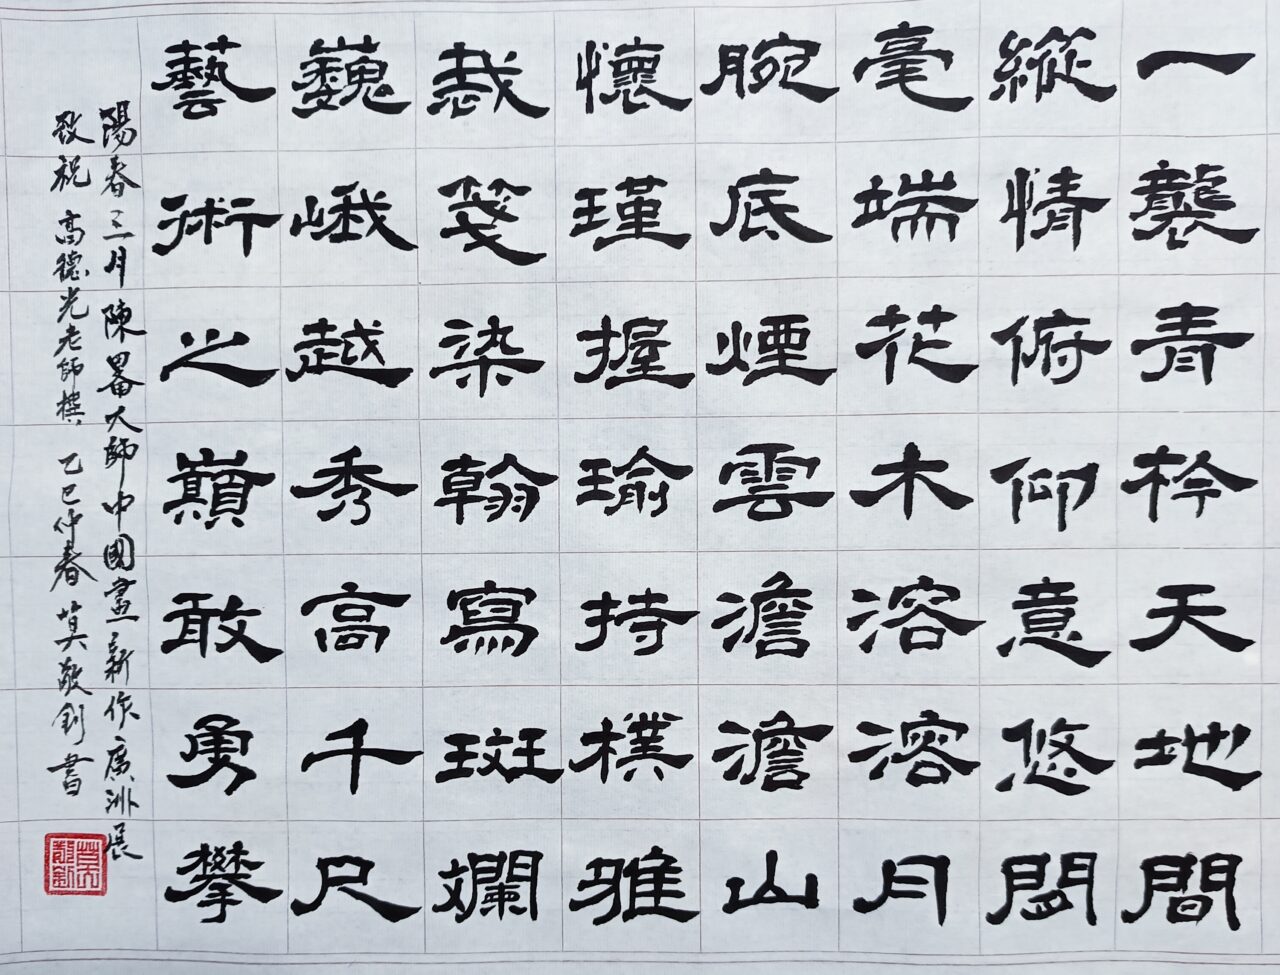 一襲青衿天地間
縱情俯仰意悠閒
毫端花木溶溶月
腕底煙雲澹澹山
懷瑾握瑜持樸雅
裁箋染翰寫斑斕
巍峨越秀高千尺
藝術之巔敢勇攀
陽春三月陳大師中國畫新作廣洲展
致祝 高德光老師撰 乙巳仲春 莫敬釗書
莫敬釗